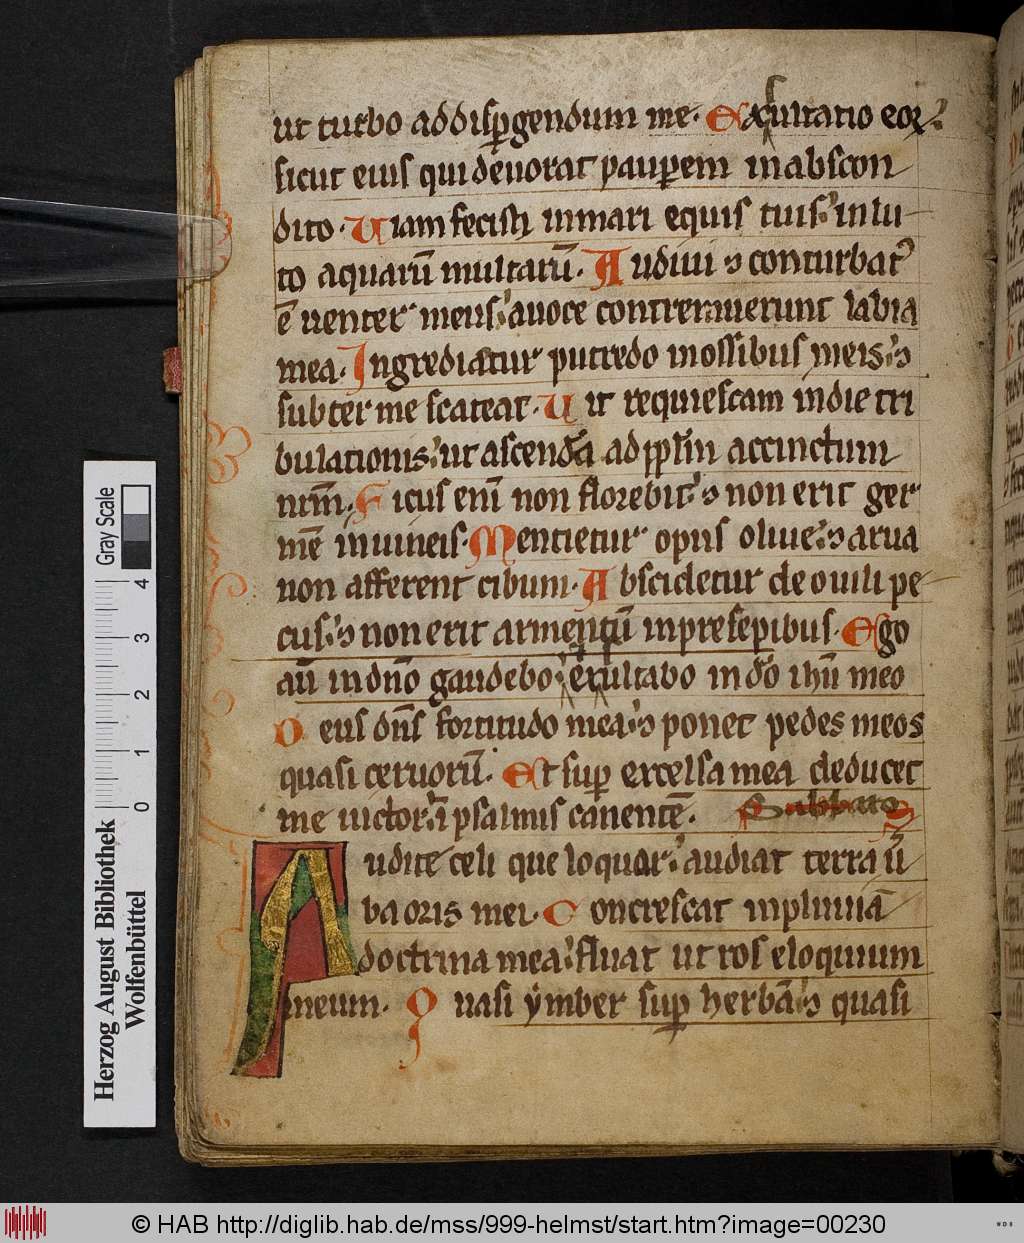 ut turbo ad disꝑgendum me. Exultatio eoꝝ.
sicut eius qui deuorat pauꝑem in abscon
dito. Uiam fecisti in mari equis tuis. in lu
to aquarū multarū. Audiui ⁊ conturbatꝰ
ē uenter meus. a uoce contremuerunt labia
mea. Ingrediatur putredo in ossibus meis. ⁊
subter me scateat. Ut requiescam in die tri
bulationis. ut ascendā ad pplm̄ accinctum
nr̄m. Ficus eni̅ non florebit. ⁊ non erit ger
mē in uineis. Mentietur opus oliue. ⁊ arua
non afferent cibum. Abscidetur de ouili pe
cus. ⁊ non erit armentum in presepibus. Ego
aū in dn̄o gaudebo. exultabo in do̅ ihu̅ meo
Deus dn̄s fortitudo mea. ⁊ ponet pedes meos
quasi ceruorū. Et suꝑ excelsa mea deducet
me uictor i̅ psalmis canentē. Sabbato
Audite celi que loquar. audiat terra ū
ba oris mei. Concrescat in pluuiā
doctrina mea. fluat ut ros eloquium
meum. Quasi ymber suꝑ herbā. ⁊ quasi
Gray Scale
4
3
2
1
0
Herzog August Bibliothek
Wolfenbüttel
© HAB http://diglib.hab.de/mss/999-helmst/start.htm?image=00230